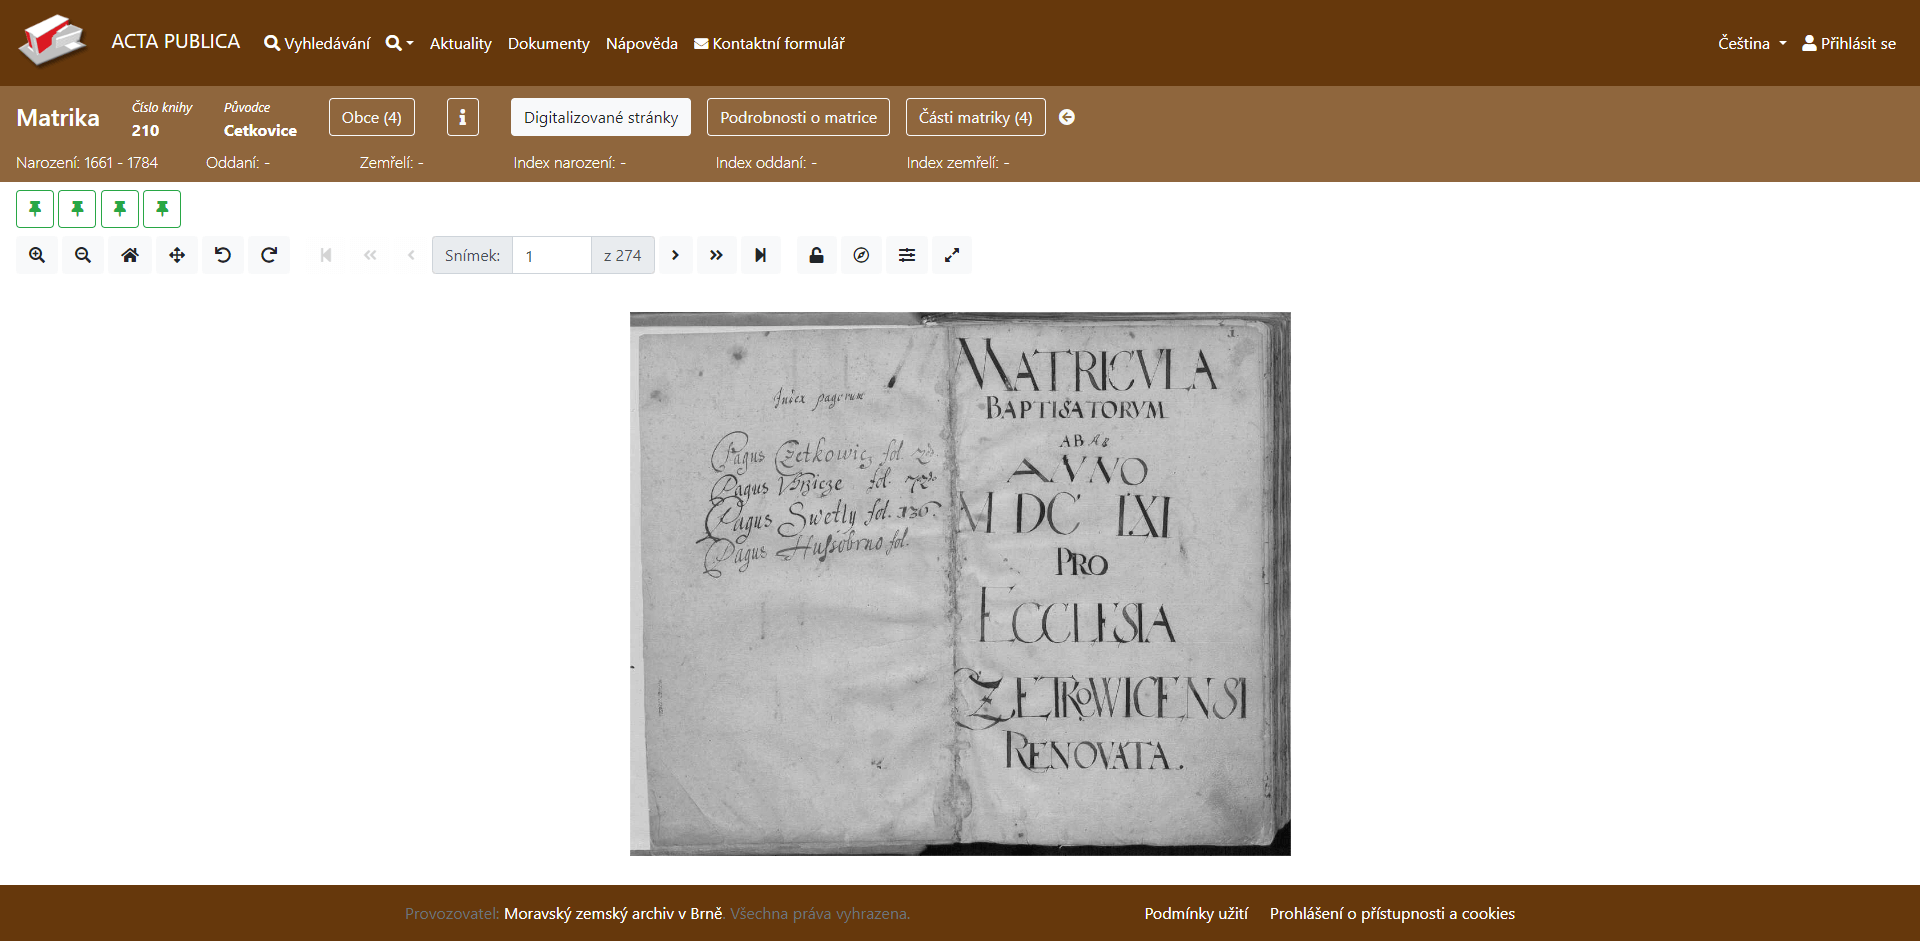 ACTA PUBLICA
Vyhledávání
Aktuality
Dokumenty
Nápověda
Kontaktní formulář
Čeština
Přihlásit se
Matrika
Číslo knihy
210
Původce
Cetkovice
Obce (4)
Digitalizované stránky
Podrobnosti o matrice
Části matriky (4)
Narození: 1661 - 1784
Oddaní: -
Zemřelí: -
Index narození: -
Index oddaní: -
Index zemřelí: -
Snímek:
1
z 274
Index pagorum
Pagus Czetkowicz fol.
Pagus fol.
Pagus Swetly fol. 136.
Pagus Hussobrno fol.
1.
MATRICVLA
BAPTISATORVM
AB
ANNO
M DC LXI
PRO
ECCLESIA
CZETKOWICENSI
RENOVATA.
Provozovatel: Moravský zemský archiv v Brně. Všechna práva vyhrazena.
Podmínky užití
Prohlášení o přístupnosti a cookies